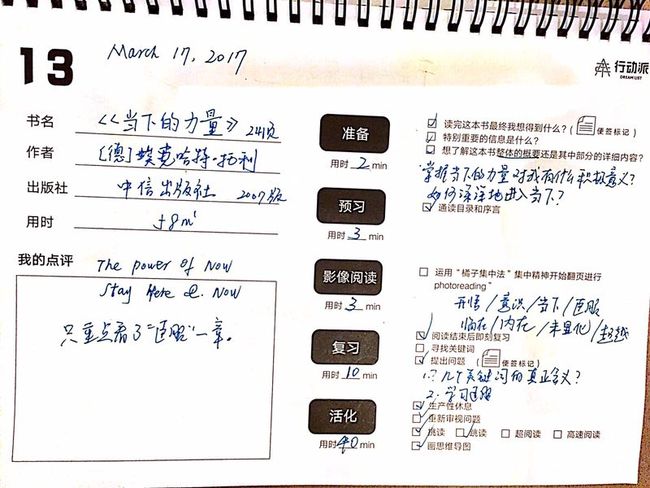 13
March 17, 2017
行动派
DREAMLIST
书名
《当下的力量》 241页
作者
[德]埃克哈特·托利
出版社
中信出版社 2007版
用时
我的点评
The power of Now
Stay Here & Now
只重点看了"臣服"一章。
准备
用时 2 min
预习
用时 3 min
影像阅读
用时 3 min
复习
用时 10 min
活化
用时 40 min
读完这本书最终我想得到什么?( 便签标记)
特别重要的信息是什么?
想了解这本书整体的概要还是其中部分的详细内容?
掌握当下的力量对我有什么积极意义?
如何深深地进入当下?
通读目录和序言
运用"橘子集中法"集中精神开始翻页进行
photoreading"
开悟/意识/当下/臣服
临在/内在/未显化/
阅读结束后即刻复习
寻找关键词
提出问题 ( 便签标记)
1.几个关键词的真正含义?
2.学习臣服
生产性休息
重新审视问题
挑读 跳读 超阅读 高速阅读
画思维导图